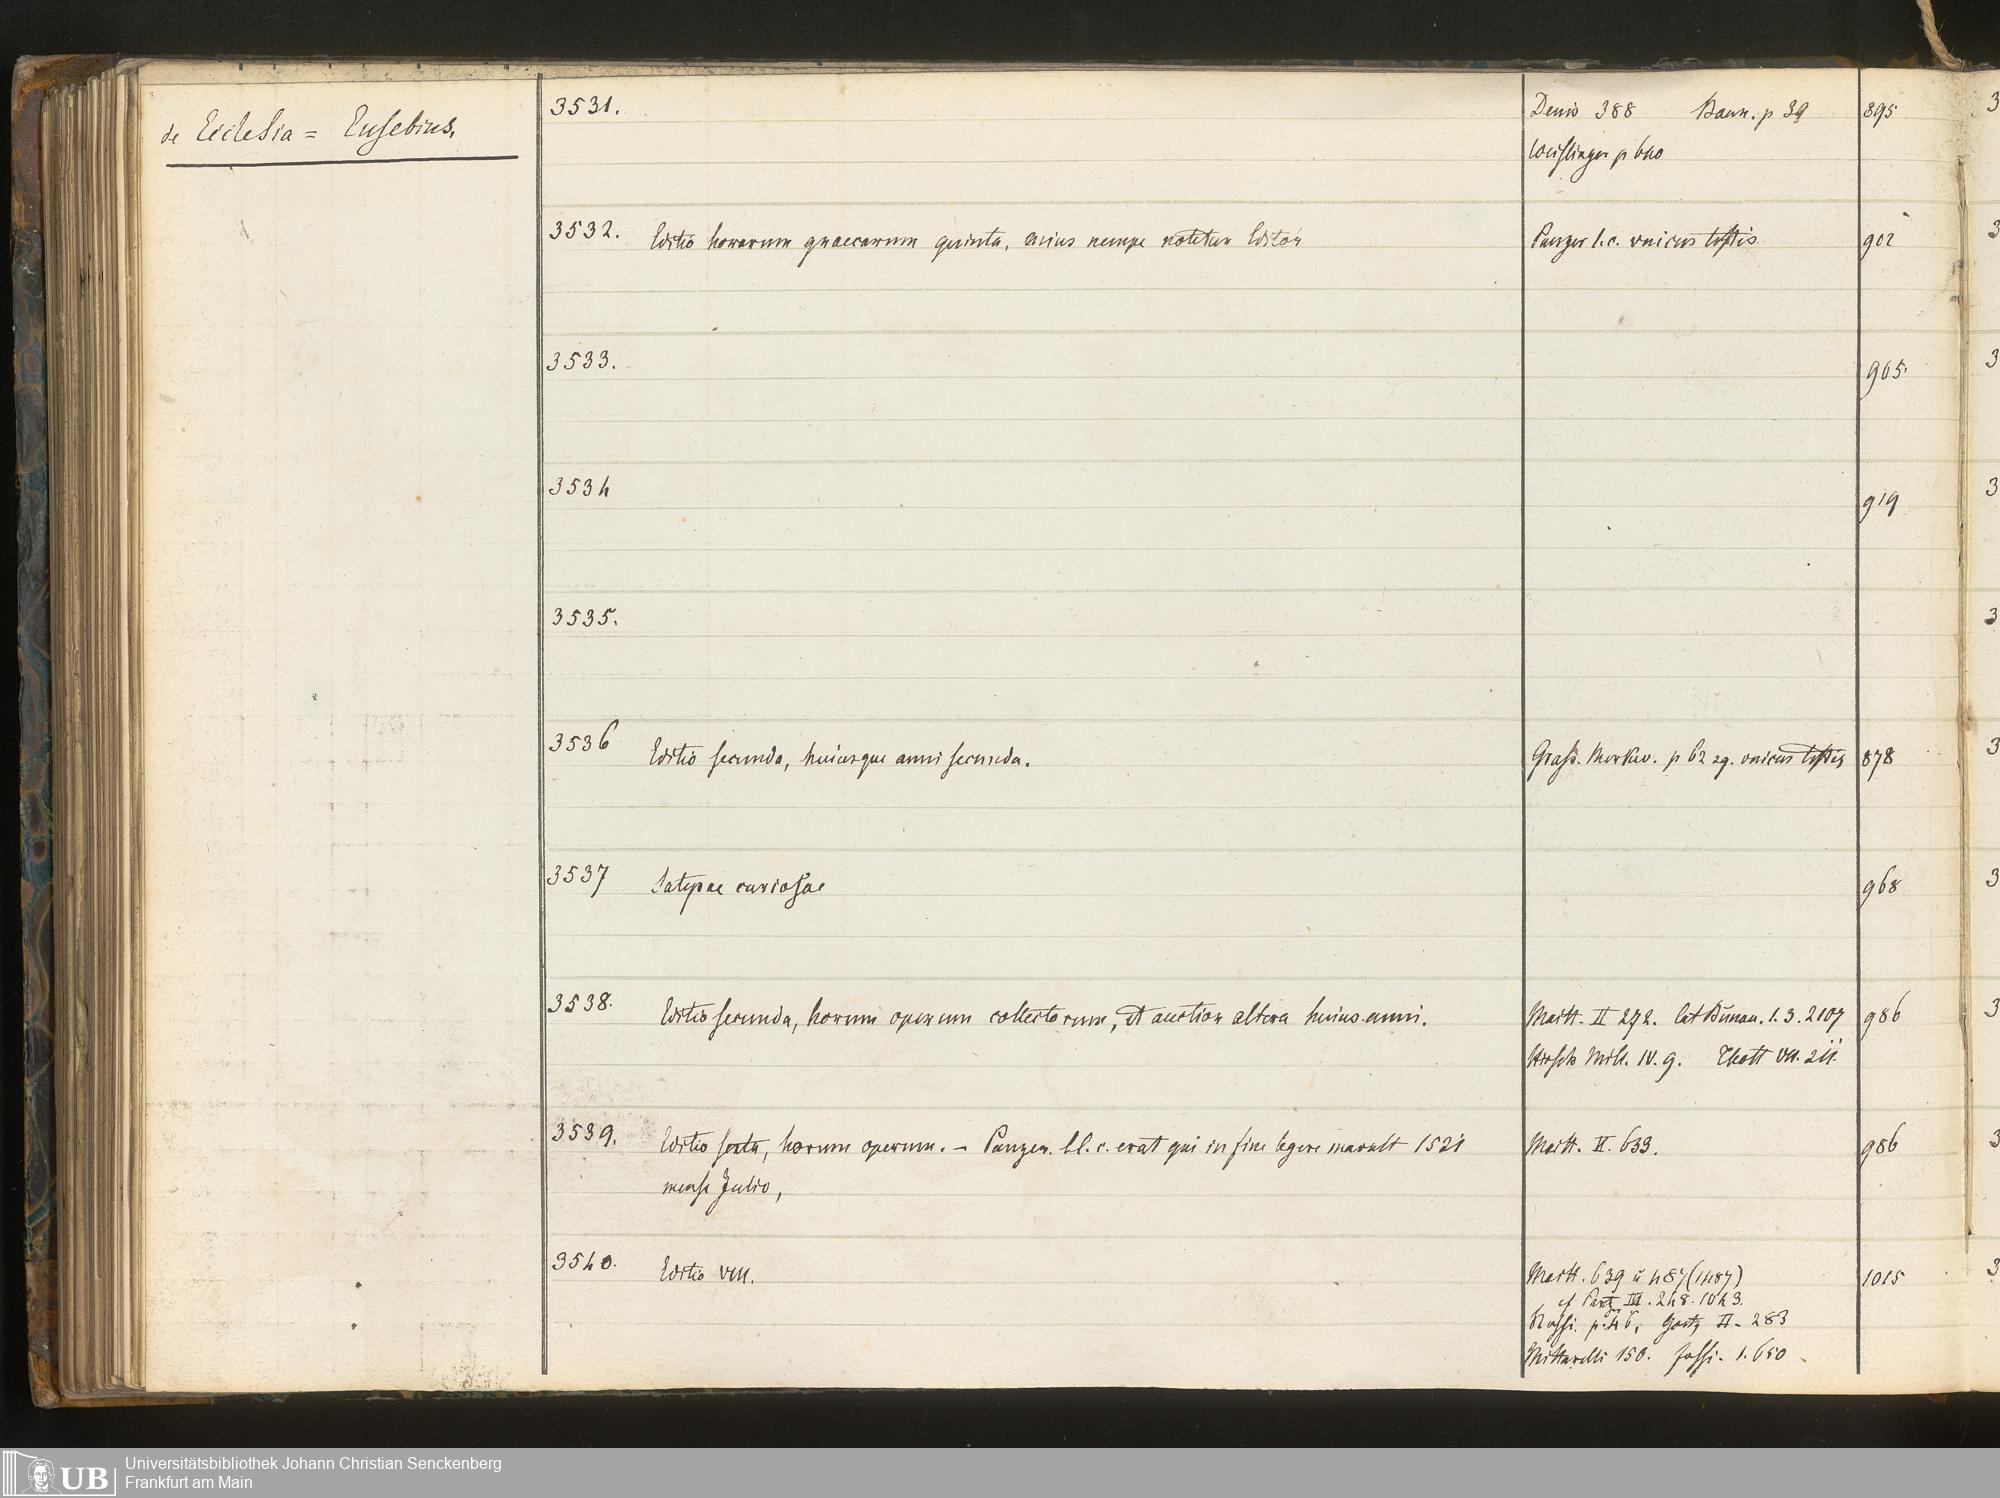 de Ecclesia = Eusebius.
3531. Denis 388 Baun. p 39 895
Weislinger p 640
3532. Editio horarum graecarum quinta, cuius nempe notetur Editor Panzer l.c. vnicus testis 902
3533. 905
3534 919
3535.
3536 Editio secunda, huiusque anni secunda. p 62 sq. vnicus testis 878
3537 Satyrae curiosae 968
3538. Editio secunda, horum operum collectorum, et auction altera huius anni. Maitt. II 272. Cat Bünau. 1. 3. 2107 986
Hirsch Mill. IV. 9. Thott VII. 211.
3539. Editio sexta, horum operum. — Panzer. ll. c. erat qui in fine legere mavult 1521 Maitt. II. 633. 986
mense Julio,
3540. Editio VIII. Maitt. 639 u 487 (1487) 1015
cf Panz III. 248. 1043.
Rossi. p. 46, Goetz II. 283
Mittarelli 150. Fossi. 1. 650
3
3
3
3
3
3
3
3
3
3
UB
Universitätsbibliothek Johann Christian Senckenberg
Frankfurt am Main